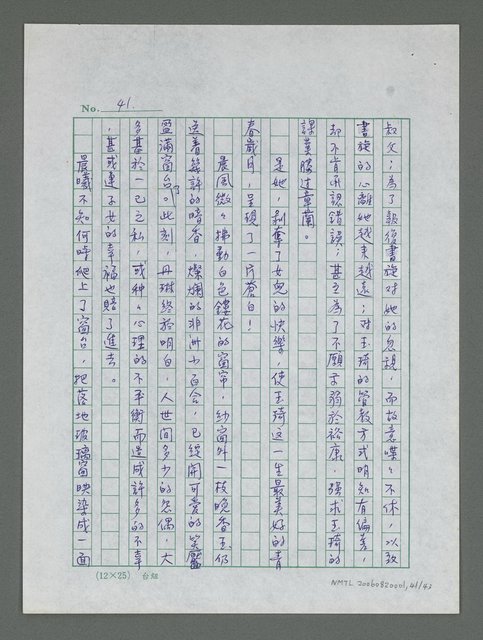 No. 41.
叔父;為了報復書旋对她的忽視,而故意喋々不休,以致
書旋的心離她越來越遠;对玉琦的管教方式明知有偏差,
却不肯承認錯誤;甚至為了不願示弱於裕康,強求玉琦的
課業勝过章蘭。
是她,剝奪了女兒的快樂,使玉琦这一生最美好的青
春歲月,呈現了一片蒼白!
晨風微々拂動白色鏤花的窗帘,紗窗外一枝晚香玉仍
送着幾許的暗香,燦爛的非洲小百合,已綻開可愛的笑靨
盈滿窗台了。此刻,丹琳終於明白,人世间多少的怨偶,大
多基於一己之私,或种々心理的不平衡而造成許多的不幸
,甚或連子女的幸福也賠了進去。
晨曦不知何時爬上了窗台,把落地玻璃窗映染成一面
(12×25) 台組
NMTL 20060820001,41/43